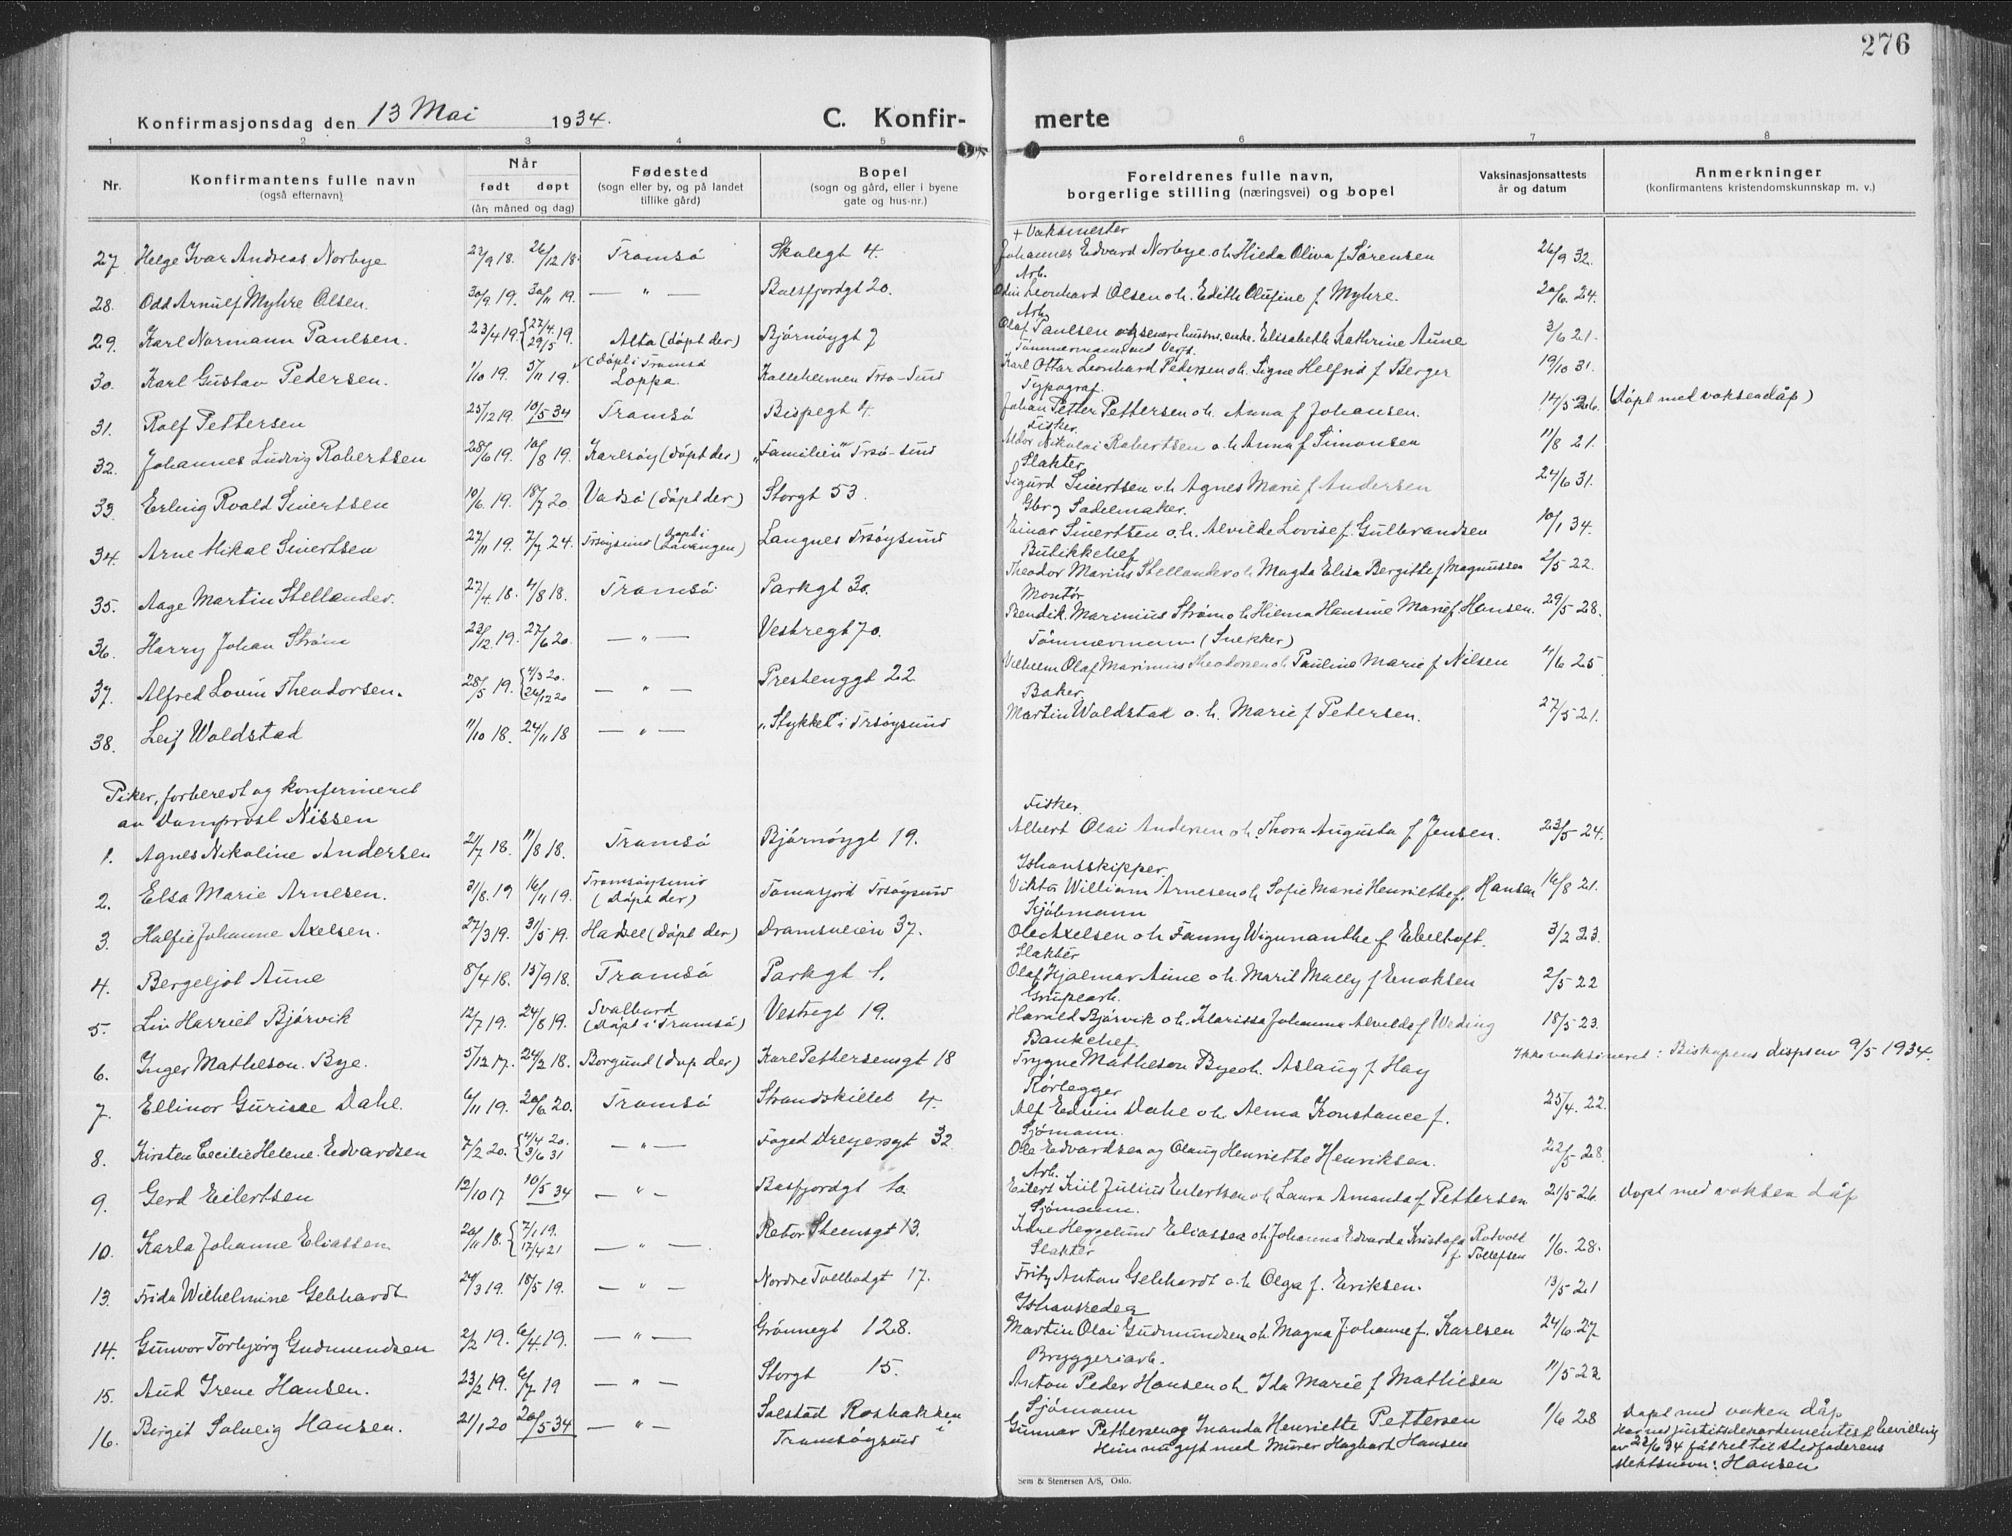 276
Konfirmasjonsdag den 13 Mai 1934.
C. Konfir-
merte
1 2 3 4 5 6 7 8
Nr.
Konfirmantens fulle navn
(også efternavn)
Når
født døpt
(år, måned og dag)
Fødested
(sogn eller by, og på landet
tillike gård)
Bopel
(sogn og gård, eller i byene
gate og hus-nr.)
Foreldrenes fulle navn,
borgerlige stilling (næringsvei) og bopel
Vaksinasjonsattests
år og datum
Anmerkninger
(konfirmantens kristendomskunnskap m. v.)
+ Vaksmester
27. Helge Ivar Andreas Norbye 27/9 18. 26/12 18. Tromsø Skolegt 4. Johannes Edvard Norbye o.h. Hilda Oliva f Sørensen 26/9 32.
Arb.
28. Odd Arnulf Myhre Olsen. 30/9 19. 30/11 19. — " — Balsfjordgt 20. Odin Leonhard Olsen o.h. Edith Olufine f Myhre. 20/6 24.
Arb.
29. Karl Normann Paulsen. 23/4 19. {27/4 29/5 19. Alta (døpt der) Bjørnøygt 7 Olaf Paulsen og senere hustru, enke, Elisabeth Kathrine Aune 3/6 21.
Tømmermann ved Verft.
30. Karl Gustav Pedersen. 1/10 19. 5/11 19. (Døpt i Tromsø Loppa. Kalleheimen Trsø-Sund Karl Ottar Leonhard Pedersen o.h. Signe Helfrid f Berger 19/10 31.
Typograf.
31. Rolf Pettersen 25/12 19. 10/5 34 Tromsø Bispegt 4. Johan Petter Pettersen o.h. Anna f Johansen. 14/5 26. (Døpt med voksendåp)
Fisker.
32. Johannes Ludvig Robertsen 28/6 19. 10/8 19. Karlsøy (døpt der) "Familien" Trsø-sund Aldor Nikolai Robertsen o.h. Anna f Simonsen 11/8 21.
Slakter
33. Erling Roald Sivertsen 10/6 19. 18/7 20. Vadsø (døpt der) Storgt 53. Sigurd Sivertsen o.h. Agnes Marie f Andersen 24/6 31.
Gbr og Sadelmaker.
34. Arne Mikal Sivertsen 27/11 19. 7/7 24. Trsøysund (døpt i Lavangen) Langnes Trsøysund Einar Sivertsen o.h. Alvilde Lovise f. Gulbrandsen 10/1 34.
Butikkchef
35. Aage Martin Stellander. 27/4 18. 4/8 18. Tromsø Parkgt 30. Theodor Marius Stellander o.h. Magda Elisa Bergitte f Magnussen 2/5 22.
Montør
36. Harry Johan Strøm 23/12 19. 27/6 20. — " — Vestregt 70. Bendik Marinius Strøm o.h. Hilma Hansine Marie f. Hansen. 29/5 28.
Tømmermann (Snekker)
37. Alfred Lovin Theodorsen. 28/5 19. {4/3 20. 26/12 20 — " — Prestenggt 22 Vilhelm Olaf Marinius Theodorsen o.h. Pauline Marie f Nilsen 4/6 25
Baker.
38. Leif Woldstad 11/10 18. 24/11 18 — " — "Stykket" i Trsøysund Martin Woldstad o. h. Marie f Petersen. 27/5 21.
Piker, forberedt og konfirmeret
av Domprost Nissen
Fisker
1. Agnes Nikoline Andersen 21/7 18. 11/8 18. Tromsø Bjørnøygt 19. Albert Olai Andersen o.h. Thora Augusta f Jensen. 23/5 24.
Ishavsskipper.
2. Elsa Marie Arnesen. 31/8 19 16/11 19. Tromsøysund (Døpt der) Tomasjord Trsøysund Viktor William Arnesen o.h. Sofie Marie Henriette f. Hansen 16/8 21.
Kjøbmann
3. Halfie Johanne Axelsen. 27/3 19. 31/5 19. Hadsel (døpt der) Dramsveien 37. Ole Axelsen o.h. Fanny Wigunanthe f Ebeltoft. 3/2 23.
Slakter
4. Bergeljot Aune 8/4 18. 15/9 18. Tromsø Parkgt 1. Olaf Hjalmar Aune o.h. Marit Mally f Enoksen 2/5 22
Grubearb.
5. Liv Harriet Bjørvik 12/7 19. 24/8 19. Svalbard (Døpt i Tromsø) Vestregt 19. Harald Bjørvik o.h. Klarissa Johanna Alvilde f Weding 18/5 23.
Bankchef.
6. Inger Matheson Bye. 5/12 17. 24/2 18. Borgund (døp der) Karl Pettersensgt 18 Trygve Matheson Bye o.h. Aslaug f Hay Ikke vaksineret: Biskopens dispens 9/5 1934.
Rørlegger
7. Ellinor Gurine Dahl. 6/11 19. 20/6 20. Tromsø Strandskillet 4. Alf Edvin Dahl o.h. Alma Konstance f. 25/4. 22.
Sjømann.
8. Kirsten Cecilie Helene Edvardsen 7/2 20. {4/4 20. 3/6 31 — " — Foged Dreyersgt 32 Ole Edvardsen og Olaug Henriette Henriksen. 22/5 28.
Arb.
9. Gerd Eilertsen 12/10 17 10/5 34 — " — Balsfjordgt 10. Eilert Kiil Julius Eilertsen o.h. Laura Amanda f Pettersen 21/5 26 Døpt med voksen dåp
Sjømann.
10. Karla Johanne Eliassen 20/11 18. {7/1 19. 17/4 21 — " — Rektor Steensgt 13. Kåre Heggelund Eliassen o.h. Johanna Edvarda Kristofa Rotvolt f Tollefsen 1/6. 28.
Slakter
13. Frida Wilhelmine Gebhardt 24/3 19. 18/5 19. — " — Nordre Tollbodgt 17. Fritz Anton Gebhardt o.h. Olga f. Eriksen. 13/5 21
Ishavsreder
14. Gunvor Torbjørg Gudmundsen 2/2 19. 6/4 19. — " — Grønnegt 128. Martin Olai Gudmundsen o.h. Magna Johanne f. Karlsen 24/6 27
Bryggeriarb.
15. Aud Irene Hansen. 23/2 19. 6/7 19 — " — Storgt 15. Anton Peder Hansen o.h. Ida Marie f Mathisen 11/5 23
Sjømann
16. Birgit Solveig Hansen. 21/1 20 20/5 34 — " — Solstad Rosbakken i Tromsøysund Gunnar Pettersen og Inanda Henriette Pettersen 1/6 28 Døpt med voksen dåp
Hun nu gift med Murer Hagbart Hansen
Har ved justitsdepartementets bevilling
av 22/6 34 fåt ret til stedfaderens
slektsnavn: Hansen
Sem & Stenersen A/S, Oslo.